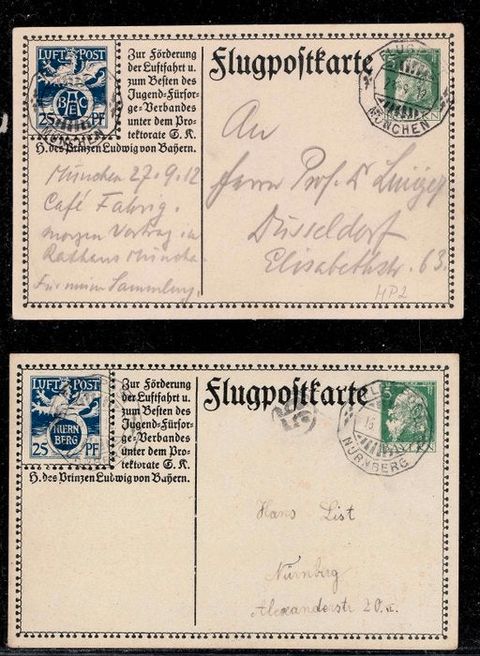 LUFT POST
BAEC
25 PF
MÜNCHEN
Zur Förderung
der Luftfahrt u.
zum Besten des
Jugend-Fürsor-
ge-Verbandes
unter dem Pro-
tektorate S. K.
H. des Prinzen Ludwig von Bayern.
Flugpostkarte
5
BAYERN
FLUG
MÜNCHEN
München 27.9.12
Café Fahrig.
morgen Vortrag im
Rathaus München
Für meine Sammlung.
An
Herrn Prof. Dr
Düsseldorf
Elisabethstr. 63.
HP2
LUFT POST
NUERN
BERG
25 PF
Zur Förderung
der Luftfahrt u.
zum Besten des
Jugend-Fürsor-
ge-Verbandes
unter dem Pro-
tektorate S. K.
H. des Prinzen Ludwig von Bayern.
Flugpostkarte
5
BAYERN
NÜRNBERG
Hans List
Nürnberg
Alexanderstr 20